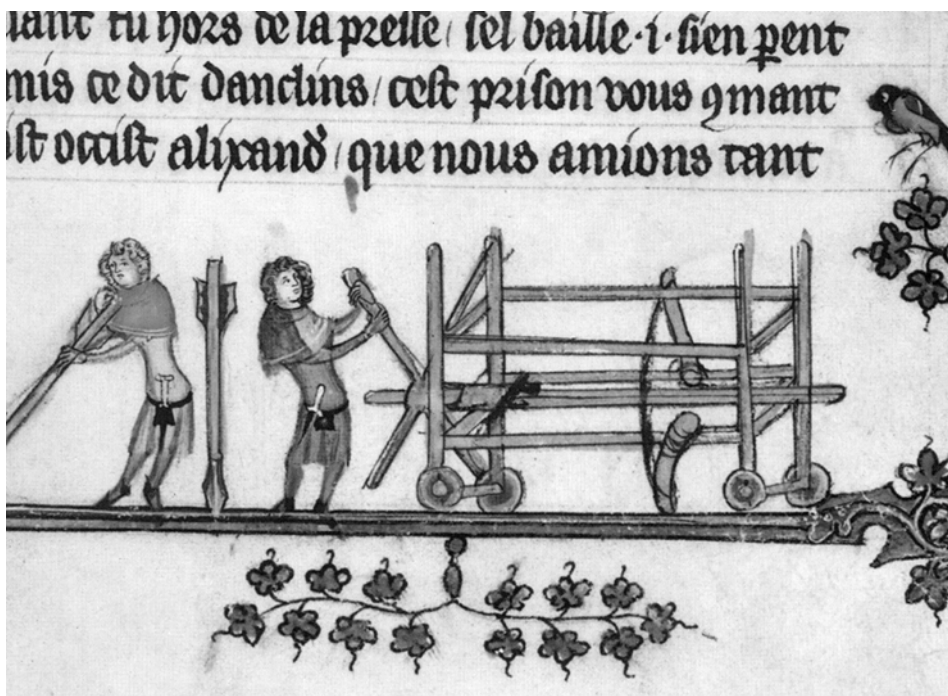 uant tu hors de la presse / sel baille · i · sien pent
mis ce dit danclins / cest prison vous ꝯmant
ist occist alixand᷑ / que nous amions tant